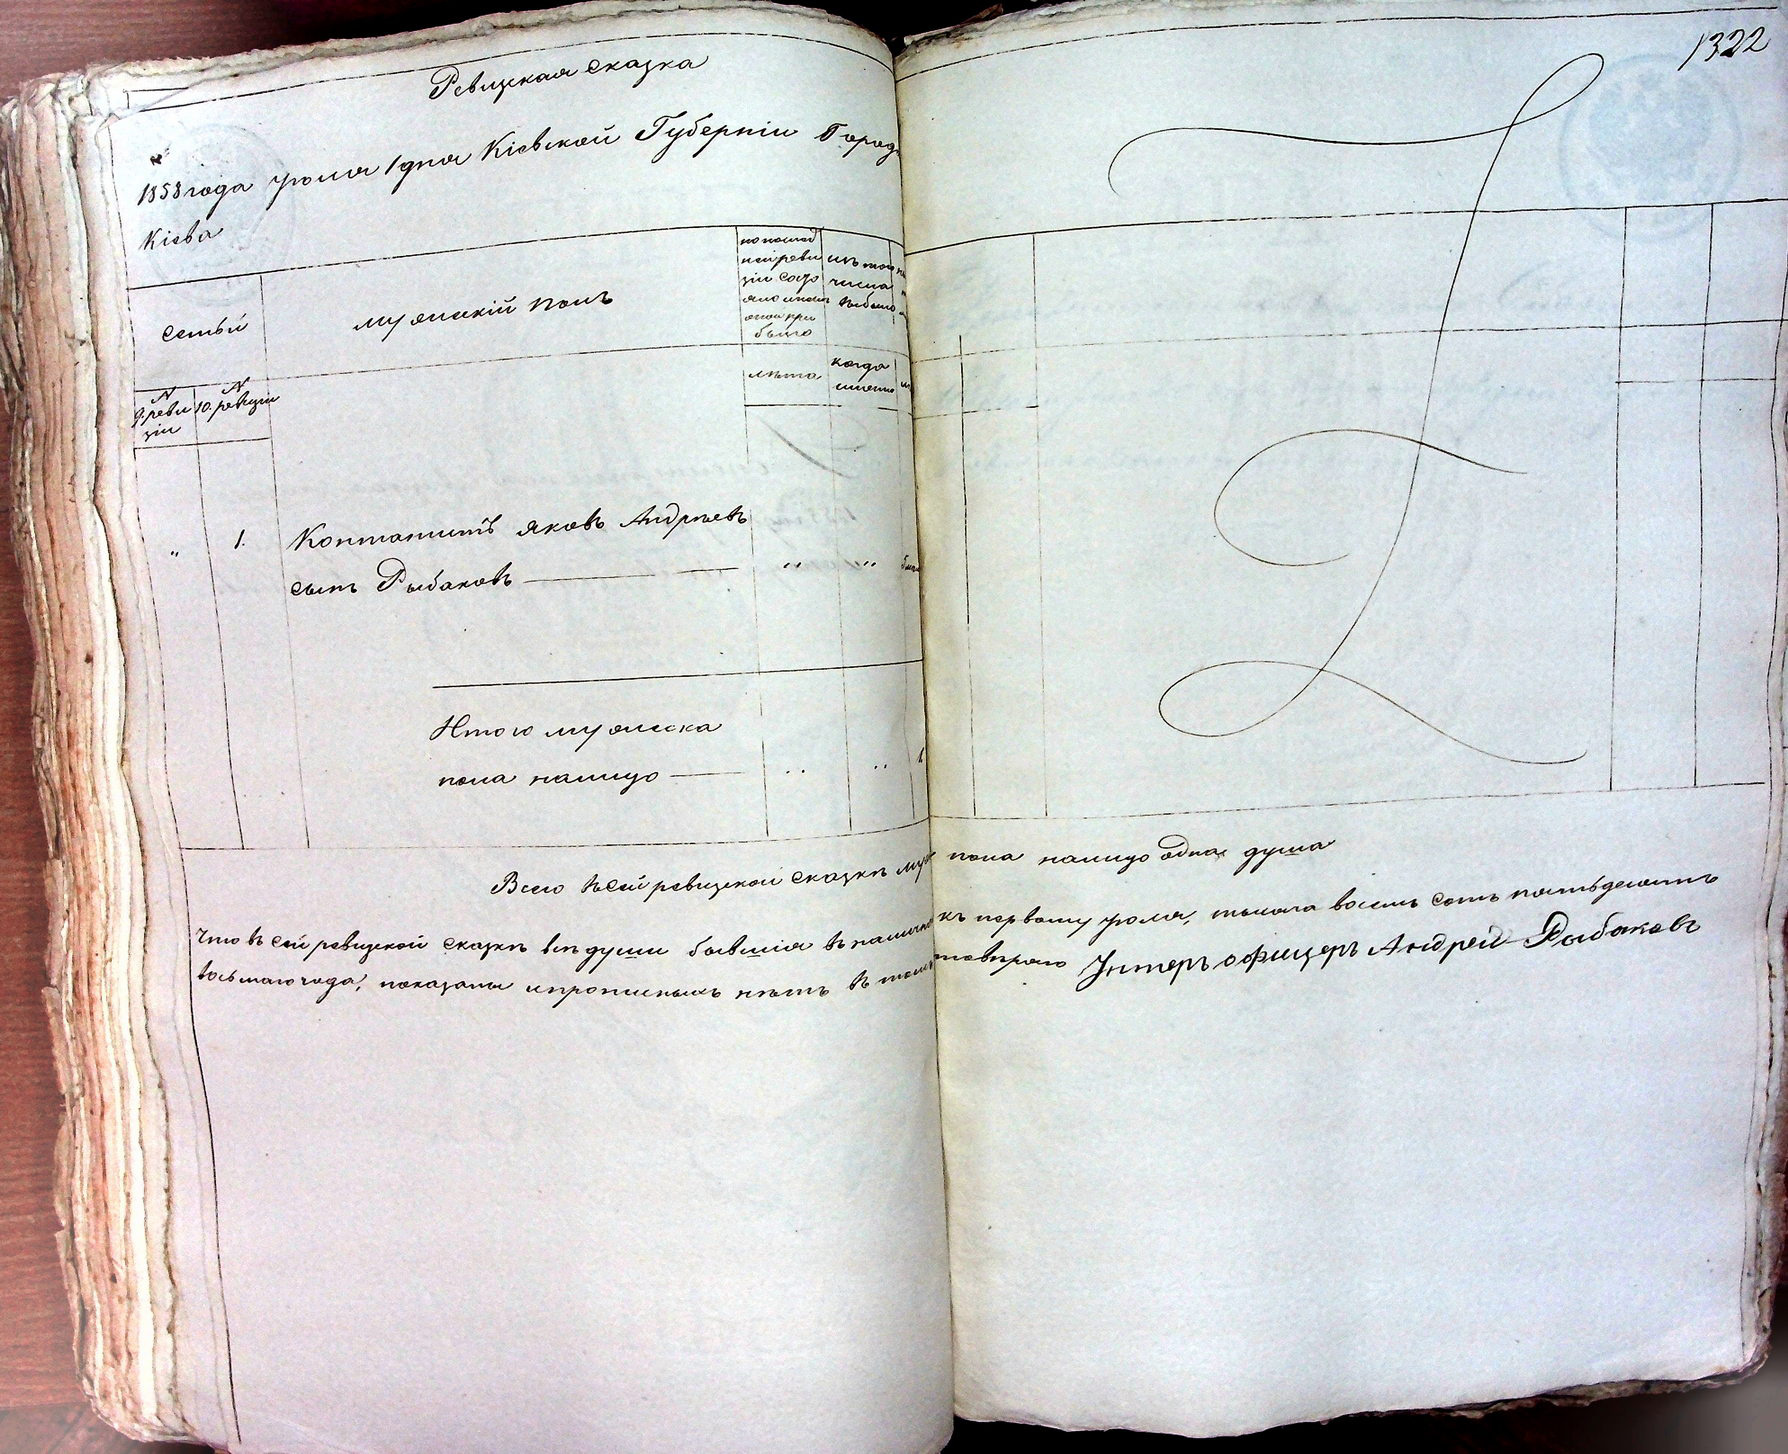 1322
Ревизская сказка
1858 года Июня 1 дня Кіевской Губерніи Город
Кіева
семьи
мужескій полъ
по послед
ней реви
зіи состо
яло и после
оной при
было
изъ того
числа
выбыло
лѣта
когда
именно
№
9. реви
зіи
№
10. ревизіи
„ 1. Кантонистъ Яковъ Андрѣевъ
сынъ Рыбаковъ „ „
Итого мужеска
пола налицо
Всего въ сей ревизской сказкѣ муж пола налицо одна душа
Что въ сей ревизской сказкѣ всѣ души бывшія въ налич къ первому Июня, тысяча восемь сотъ пятьдесятъ
восьмаго года, показаны и прописныхъ нѣтъ въ томъ Унтеръ офицеръ Андрей Рыбаковъ